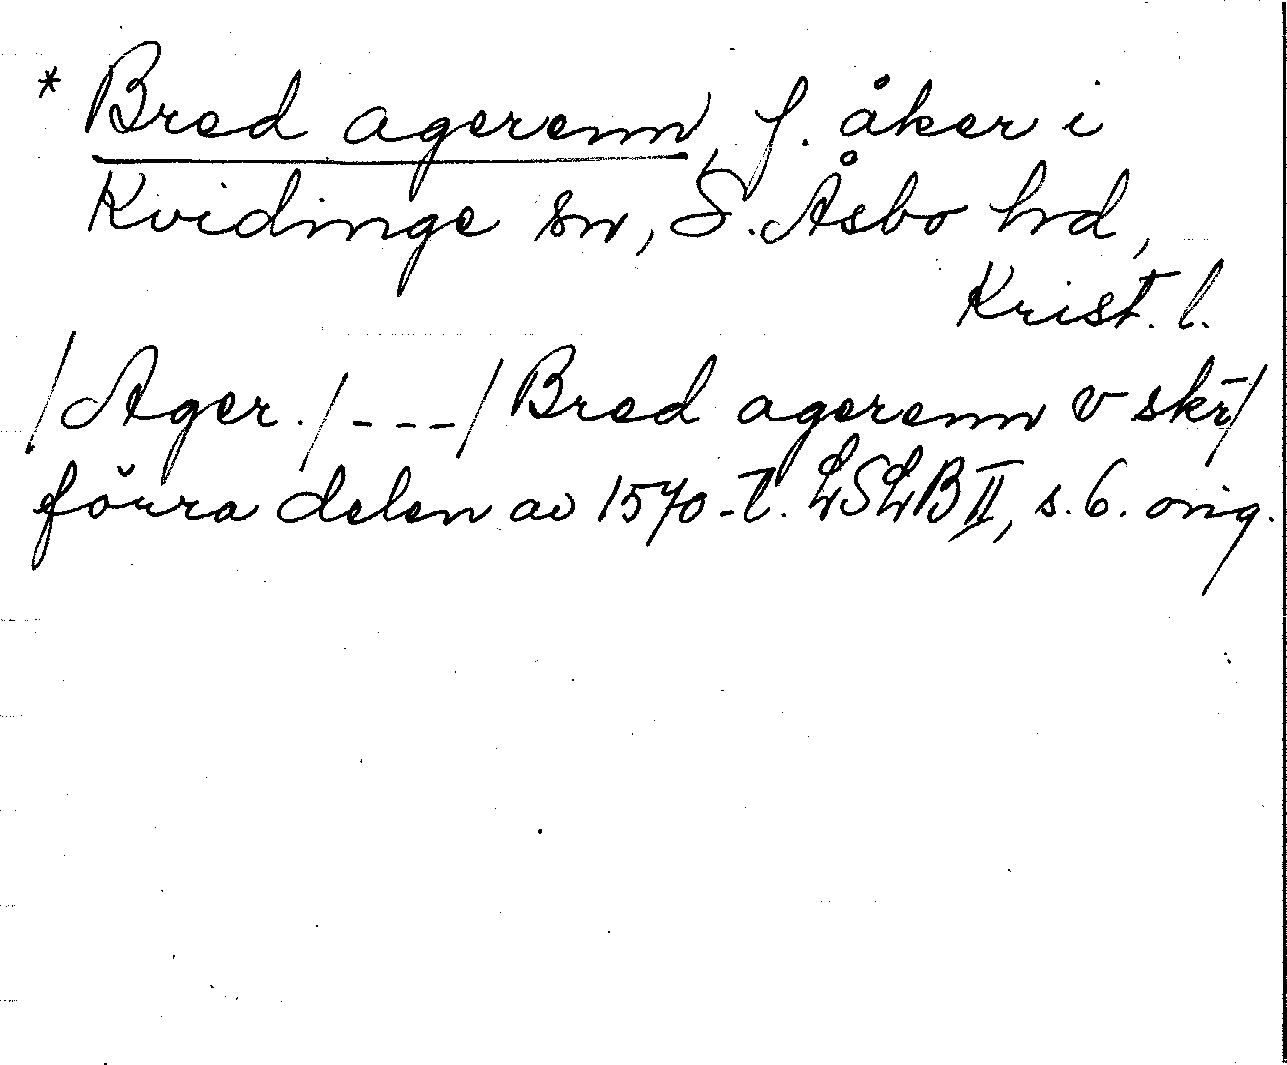 * Bred agerenn, f. åker i
Kvidinge sn, S. Åsbo hd,
Krist. l.
/Ager./---/Bred agerenn v skr̄/
förra delen av 1570-t. LSLB II, s. 6. orig.